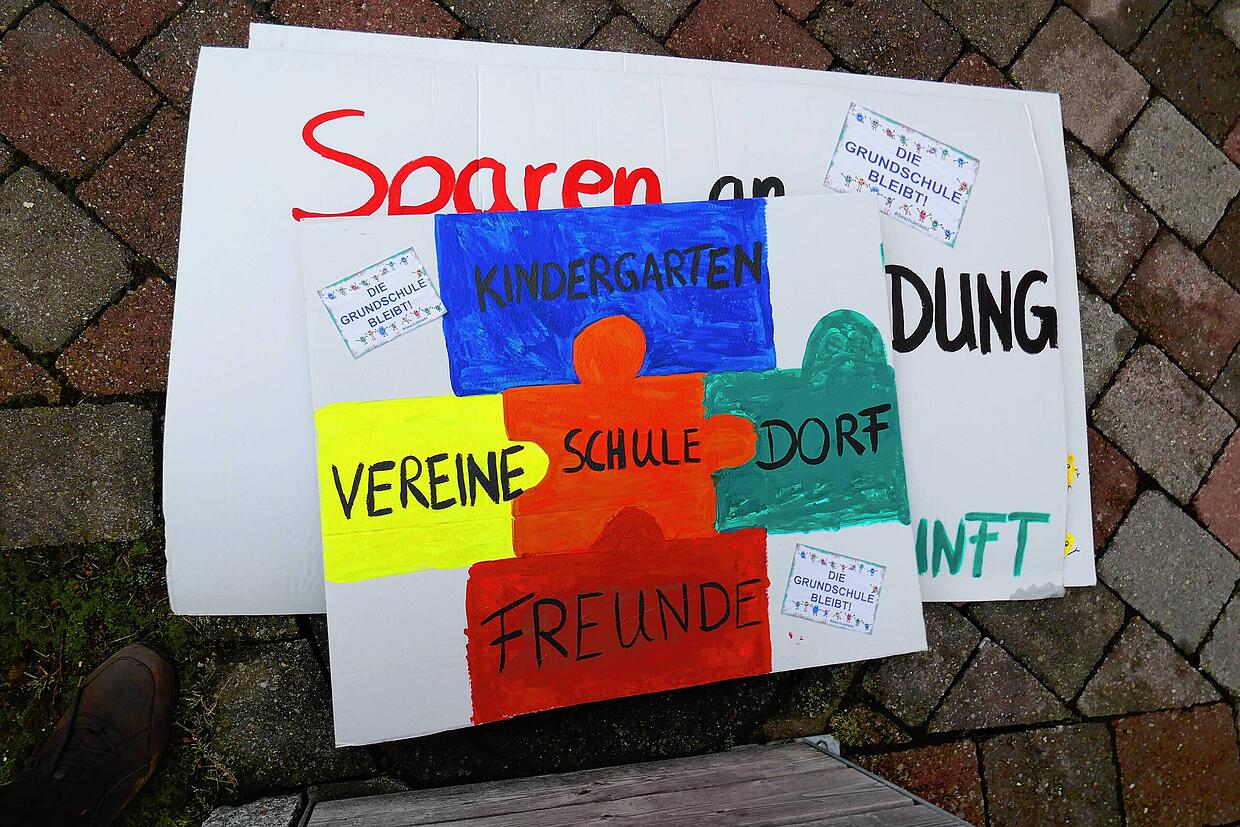 Sparen an
DIE
GRUNDSCHULE
BLEIBT!
DUNG
UNFT
KINDERGARTEN
DIE
GRUNDSCHULE
BLEIBT!
VEREINE
SCHULE
DORF
FREUNDE
DIE
GRUNDSCHULE
BLEIBT!